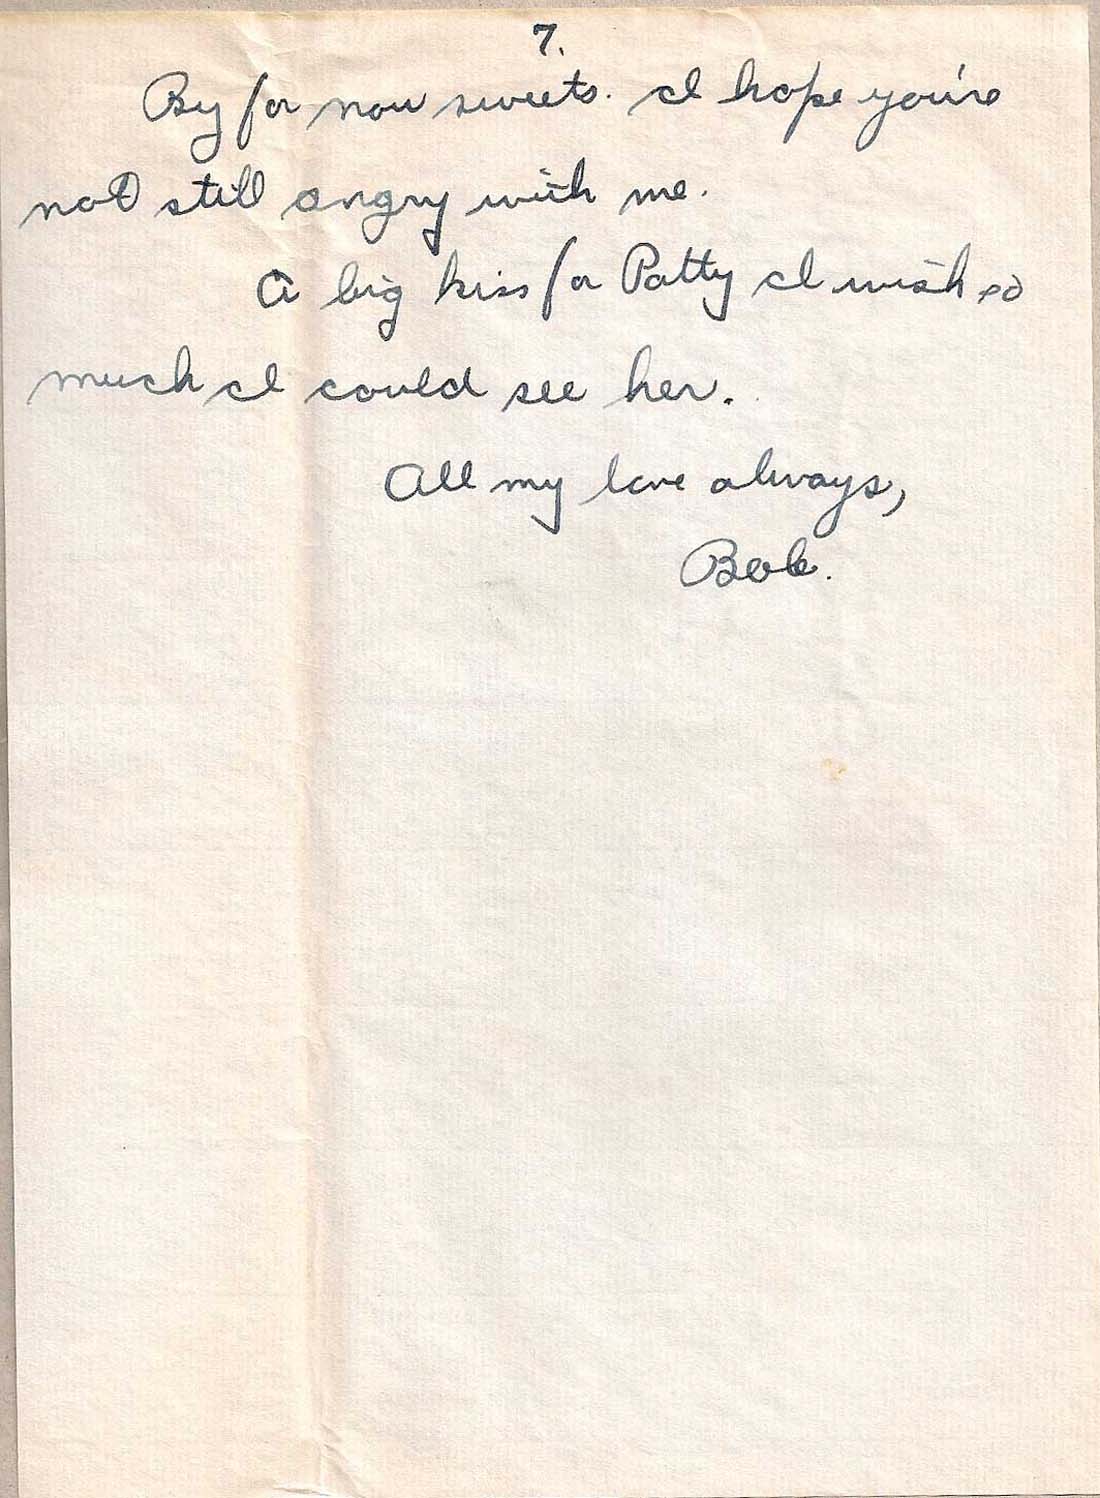 7.
By for now sweets. I hope you're
not still angry with me.
A big kiss for Patty I wish so
much I could see her.
All my love always,
Bob.